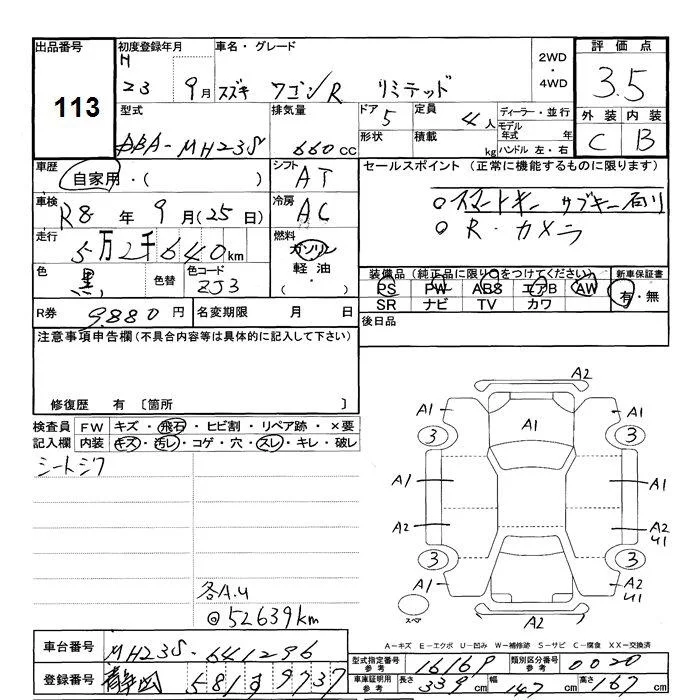 出品番号
113
初度登録年月
H
23 9月
車名・グレード
スズキ ワゴンR リミテッド
2WD
・
4WD
評価点
3.5
外装 内装
C B
型式
DBA-MH23S
排気量
660cc
ドア
5
形状
定員
4人
積載
kg
ディーラー・並行
モデル
年式 年
ハンドル 左・右
車歴
自家用・( )
シフト
AT
セールスポイント (正常に機能するものに限ります)
○スマートキー サブキー有り
○R・カメラ
車検
R8 年 9月(25日)
冷房
AC
走行
5万2千640km
燃料
ガソリン
軽油
・( )
色
黒
色替
色コード
ZJ3
装備品(純正品に限り○をつけてください)
PS PW ABS エアB AW
SR ナビ TV カワ
新車保証書
有・無
R券 9880円
名変期限 月 日
後日品
注意事項申告欄(不具合内容等は具体的に記入して下さい)
修復歴 有 〔箇所 〕
検査員 FW キズ・飛石・ヒビ割・リペア跡・×要
記入欄 内装 キズ・汚レ・コゲ・穴・スレ・キレ・破レ
シートシワ
各A.U
@52639km
A2
A1 A1 A1
3 3
A1 A1
A2 A2
U1
3 3
A1 A2
U1
スペア
A2
A-キズ E-エクボ U-凹み W-補修跡 S-サビ C-腐食 XX-交換済
車台番号 MH23S-641296
登録番号 静岡 581 す 9737
型式指定番号
参考
16169
類別区分番号
参考
0020
車庫証明用
参考
長さ 339cm 幅 147cm 高さ 167cm